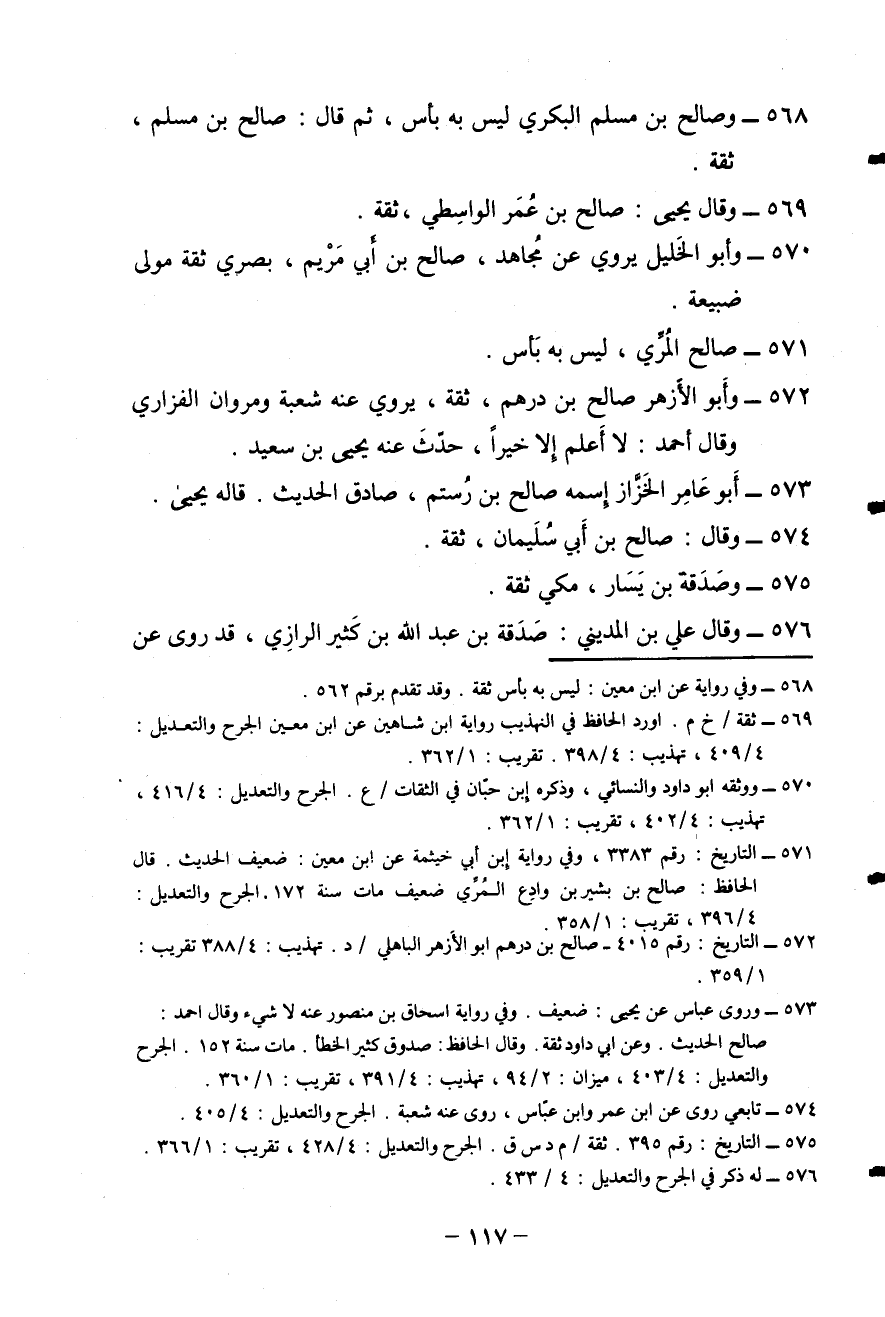 ٥٦٨ ــ وصالح بن مسلم البكري ليس به بأس ، ثم قال : صالح بن مسلم ،
ثقة .
٥٦٩ ــ وقال يحيى : صالح بن عُمَر الواسِطي ، ثقة .
٥٧٠ ــ وأبو الخَليل يروي عن مُجاهد ، صالح بن أَبي مَرْيم ، بصري ثقة مولى
ضبيعة .
٥٧١ ــ صالح المُرِّي ، ليس به بَأس .
٥٧٢ ــ وأَبو الأَزهر صالح بن درهم ، ثقة ، يروي عنه شعبة ومروان الفزاري
وقال أحمد : لا أَعلم إِلا خيراً ، حدّثَ عنه يحيى بن سعيد .
٥٧٣ ــ أَبو عَامِر الخَزَّاز إِسمه صالح بن رُستم ، صادق الحديث . قاله يحيىٰ .
٥٧٤ ــ وقال : صالح بن أَبي سُلَيمان ، ثقة .
٥٧٥ ــ وصَدَقة بن يَسَار ، مكي ثقة .
٥٧٦ ــ وقال علي بن المديني : صَدَقة بن عبد الله بن كَثير الرازِي ، قد روى عن
٥٦٨ ــ وفي رواية عن ابن معين : ليس به بأس ثقة . وقد تقدم برقم ٥٦٢ .
٥٦٩ ــ ثقة / خ م . اورد الحافظ في التهذيب رواية ابن شاهين عن ابن معين الجرح والتعديل :
٤٠٩/٤ ، تهذيب : ٣٩٨/٤ . تقريب : ٣٦٢/١ .
٥٧٠ ــ ووثقه ابو داود والنسائي ، وذكره إبن حبّان في الثقات / ع . الجرح والتعديل : ٤١٦/٤ ،
تهذيب : ٤٠٢/٤ ، تقريب : ٣٦٢/١ .
٥٧١ ــ التاريخ : رقم ٣٣٨٣ ، وفي رواية إبن أبي خيثمة عن ابن معين : ضعيف الحديث . قال
الحافظ : صالح بن بشير بن وادِع المُرِّي ضعيف مات سنة ١٧٢ . الجرح والتعديل :
٣٩٦/٤ ، تقريب : ٣٥٨/١ .
٥٧٢ ــ التاريخ : رقم ٤٠١٥ ــ صالح بن درهم ابو الأزهر الباهلي / د . تهذيب : ٣٨٨/٤ تقريب :
٣٥٩/١ .
٥٧٣ ــ وروى عباس عن يحيى : ضعيف . وفي رواية اسحاق بن منصور عنه لا شيء وقال احمد :
صالح الحديث . وعن ابي داود ثقة . وقال الحافظ : صدوق كثير الخطأ . مات سنة ١٥٢ . الجرح
والتعديل : ٤٠٣/٤ ، ميزان : ٩٤/٢ ، تهذيب : ٣٩١/٤ ، تقريب : ٣٦٠/١ .
٥٧٤ ــ تابعي روى عن ابن عمر وابن عبّاس ، روى عنه شعبة . الجرح والتعديل : ٤٠٥/٤ .
٥٧٥ ــ التاريخ : رقم ٣٩٥ . ثقة / م د س ق . الجرح والتعديل : ٤٢٨/٤ ، تقريب : ٣٦٦/١ .
٥٧٦ ــ له ذكر في الجرح والتعديل : ٤ / ٤٣٣ .
– ١١٧ –